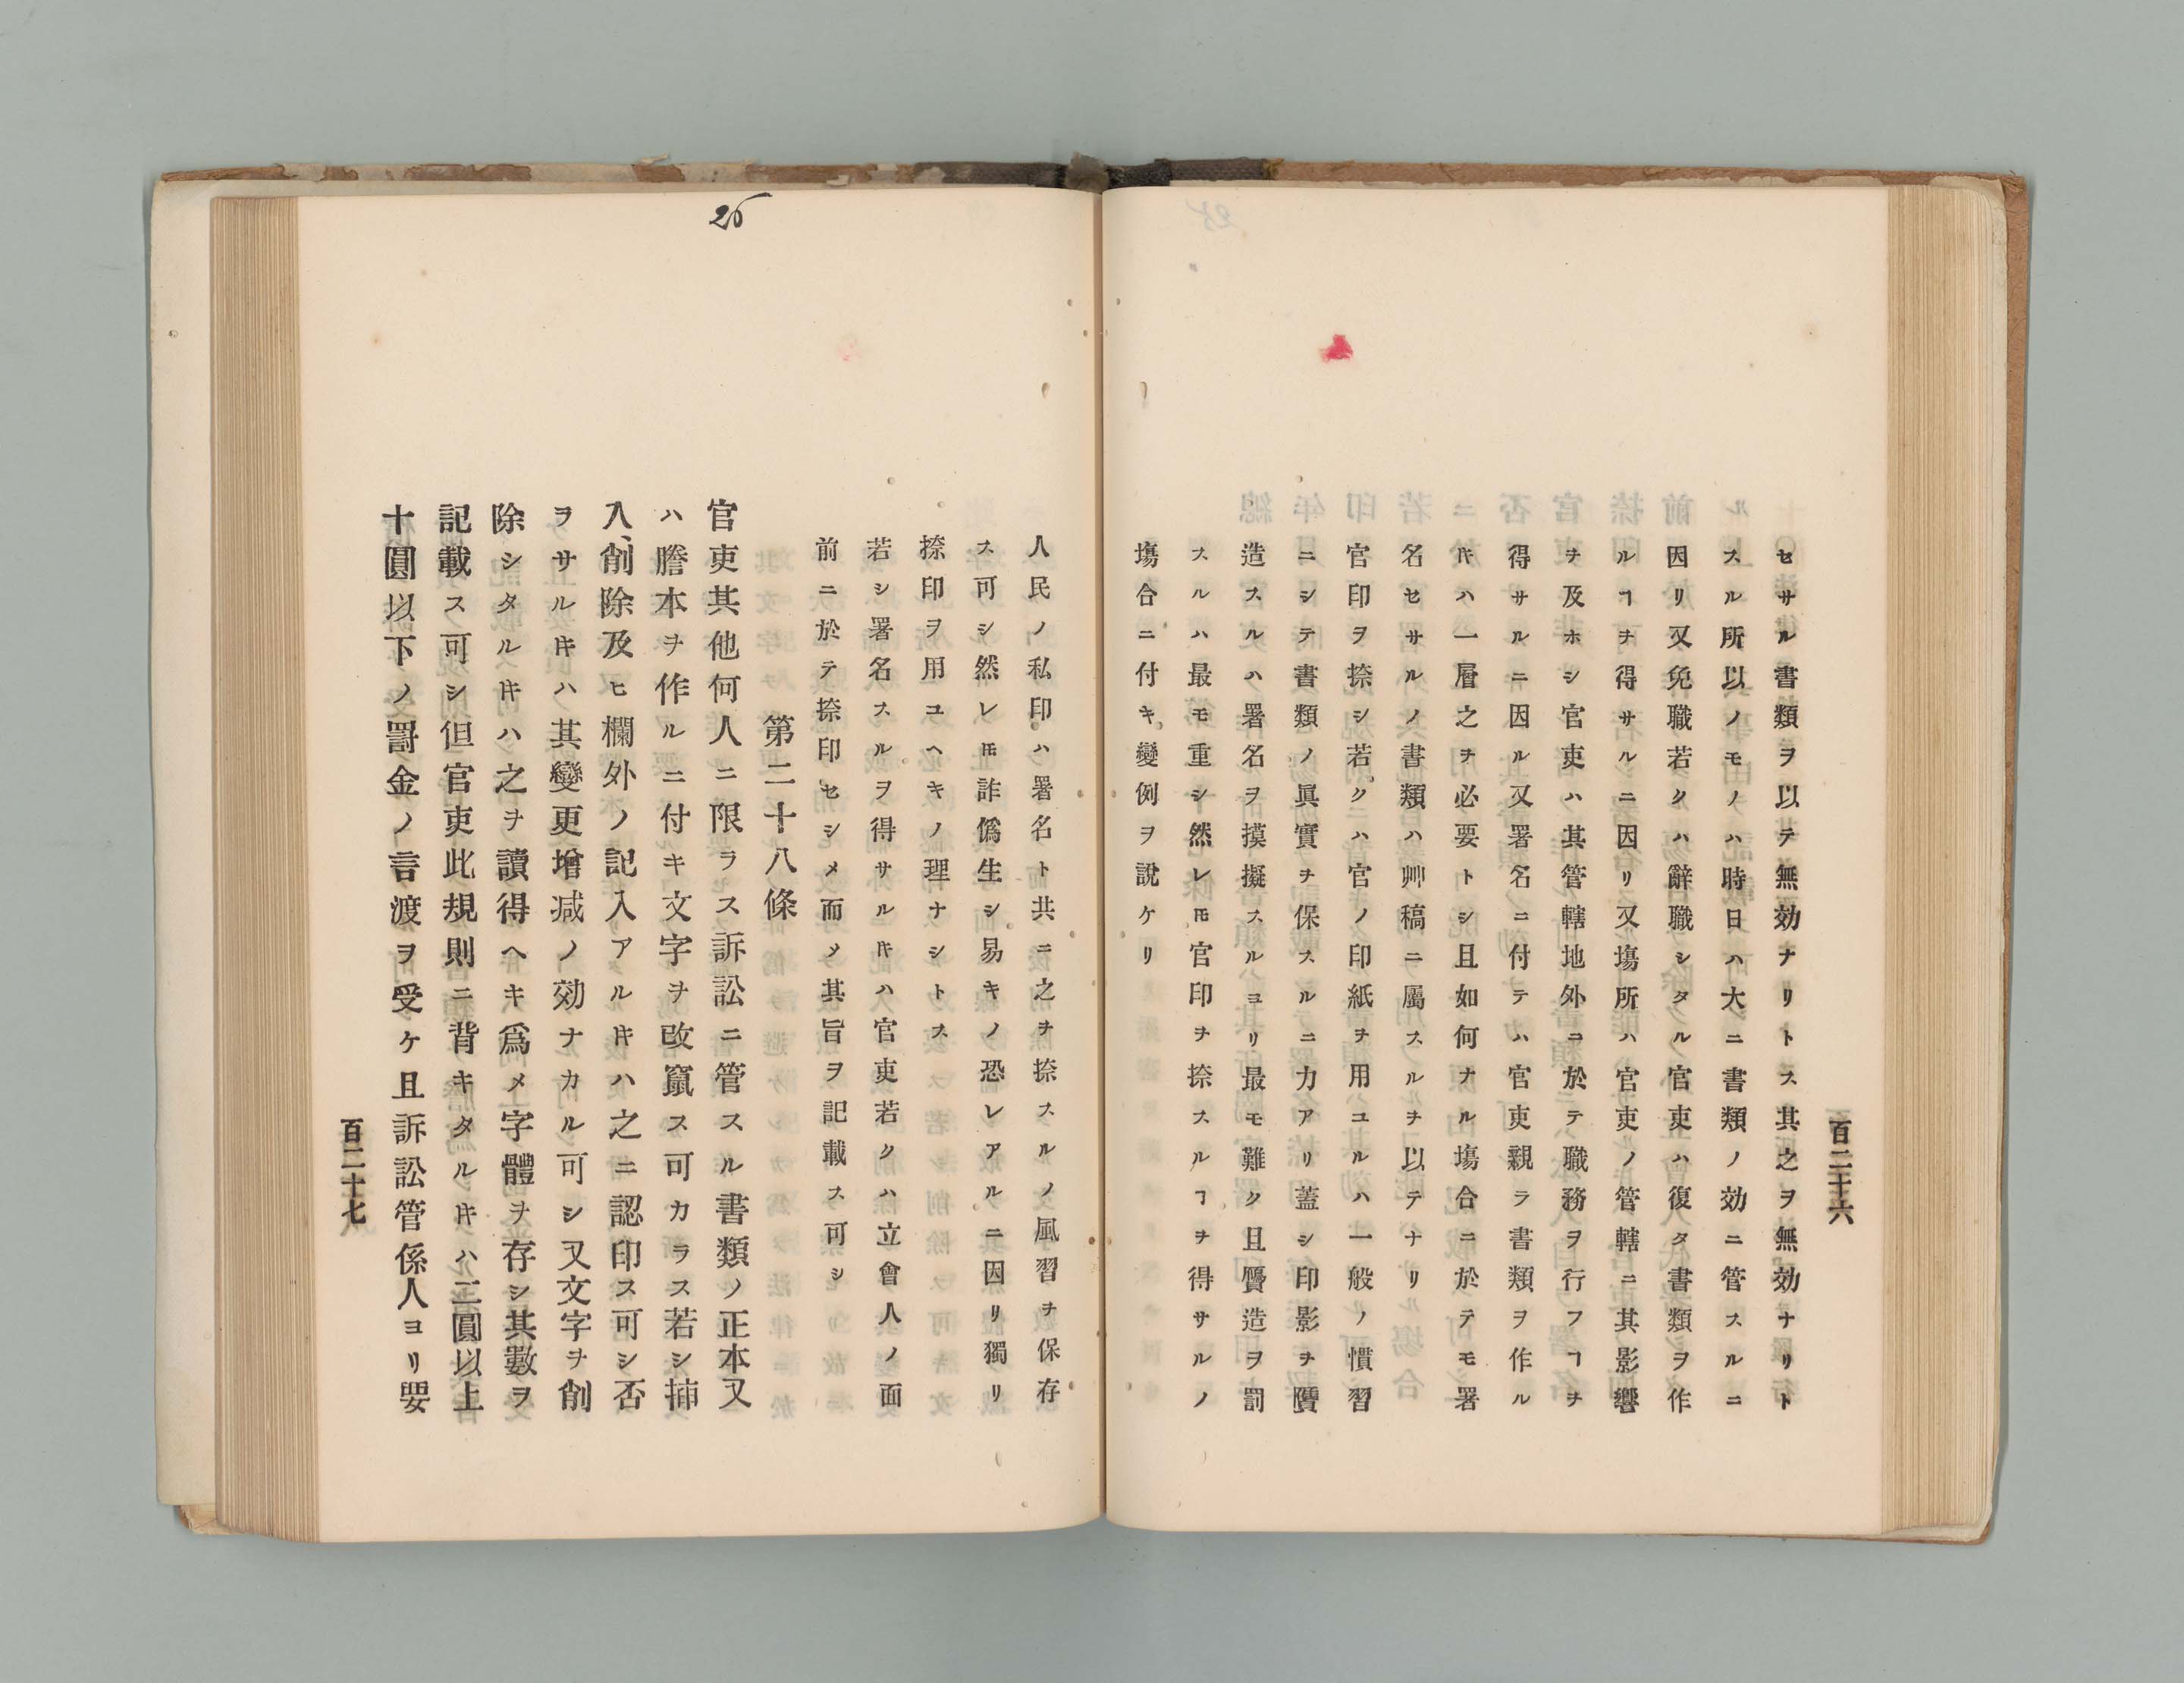 百二十六
セサル書類ヲ以テ無効ナリトス其之ヲ無効ナリト
スル所以ノモノハ時日ハ大ニ書類ノ効ニ管スルニ
因リ又免職若クハ辭職シタル官吏ハ復タ書類ヲ作
ルヿヲ得サルニ因リ又塲所ハ官吏ノ管轄ニ其影響
ヲ及ホシ官吏ハ其管轄地外ニ於テ職務ヲ行フヿヲ
得サルニ因ル又署名ニ付テハ官吏親ラ書類ヲ作ル
キハ一層之ヲ必要トシ且如何ナル塲合ニ於テモ署
名セサルノ書類ハ艸稿ニ屬スルヲ以テナリ
官印ヲ捺シ若クハ官ノ印紙ヲ用ユルハ一般ノ慣習
ニシテ書類ノ眞實ヲ保スルニ力アリ蓋シ印影ヲ贋
造スルハ署名ヲ摸擬スルヨリ最モ難ク且贋造ヲ罰
スルハ最モ重シ然レ𪜈官印ヲ捺スルヿヲ得サルノ
塲合ニ付キ變例ヲ說ケリ
25
人民ノ私印ハ署名ト共ニ之ヲ捺スルノ風習ヲ保存
ス可シ然レ𪜈詐僞生シ易キノ恐レアルニ因リ獨リ
捺印ヲ用ユヘキノ理ナシトス
若シ署名スルヲ得サルキハ官吏若クハ立會人ノ面
前ニ於テ捺印セシメ而メ其旨ヲ記載ス可シ
第二十八條
官吏其他何人ニ限ラス訴訟ニ管スル書類ノ正本又
ハ謄本ヲ作ルニ付キ文字ヲ改竄ス可カラス若シ揷
入、削除及ヒ欄外ノ記入アルキハ之ニ認印ス可シ否
ヲサルキハ其變更增减ノ効ナカル可シ又文字ヲ削
除シタルキハ之ヲ讀得ヘキ爲メ字體ヲ存シ其數ヲ
記載ス可シ但官吏此規則ニ背キタルキハ二圓以上
十圓以下ノ罸金ノ言渡ヲ受ケ且訴訟管係人ヨリ要
百二十七